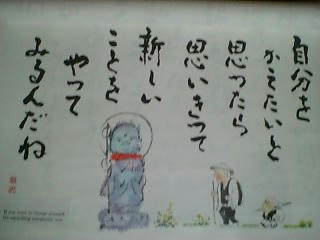 自分を
かえたいと
思ったら
思いきって
新しい
ことをを
やって
みるんだね
If you want to change yourself,